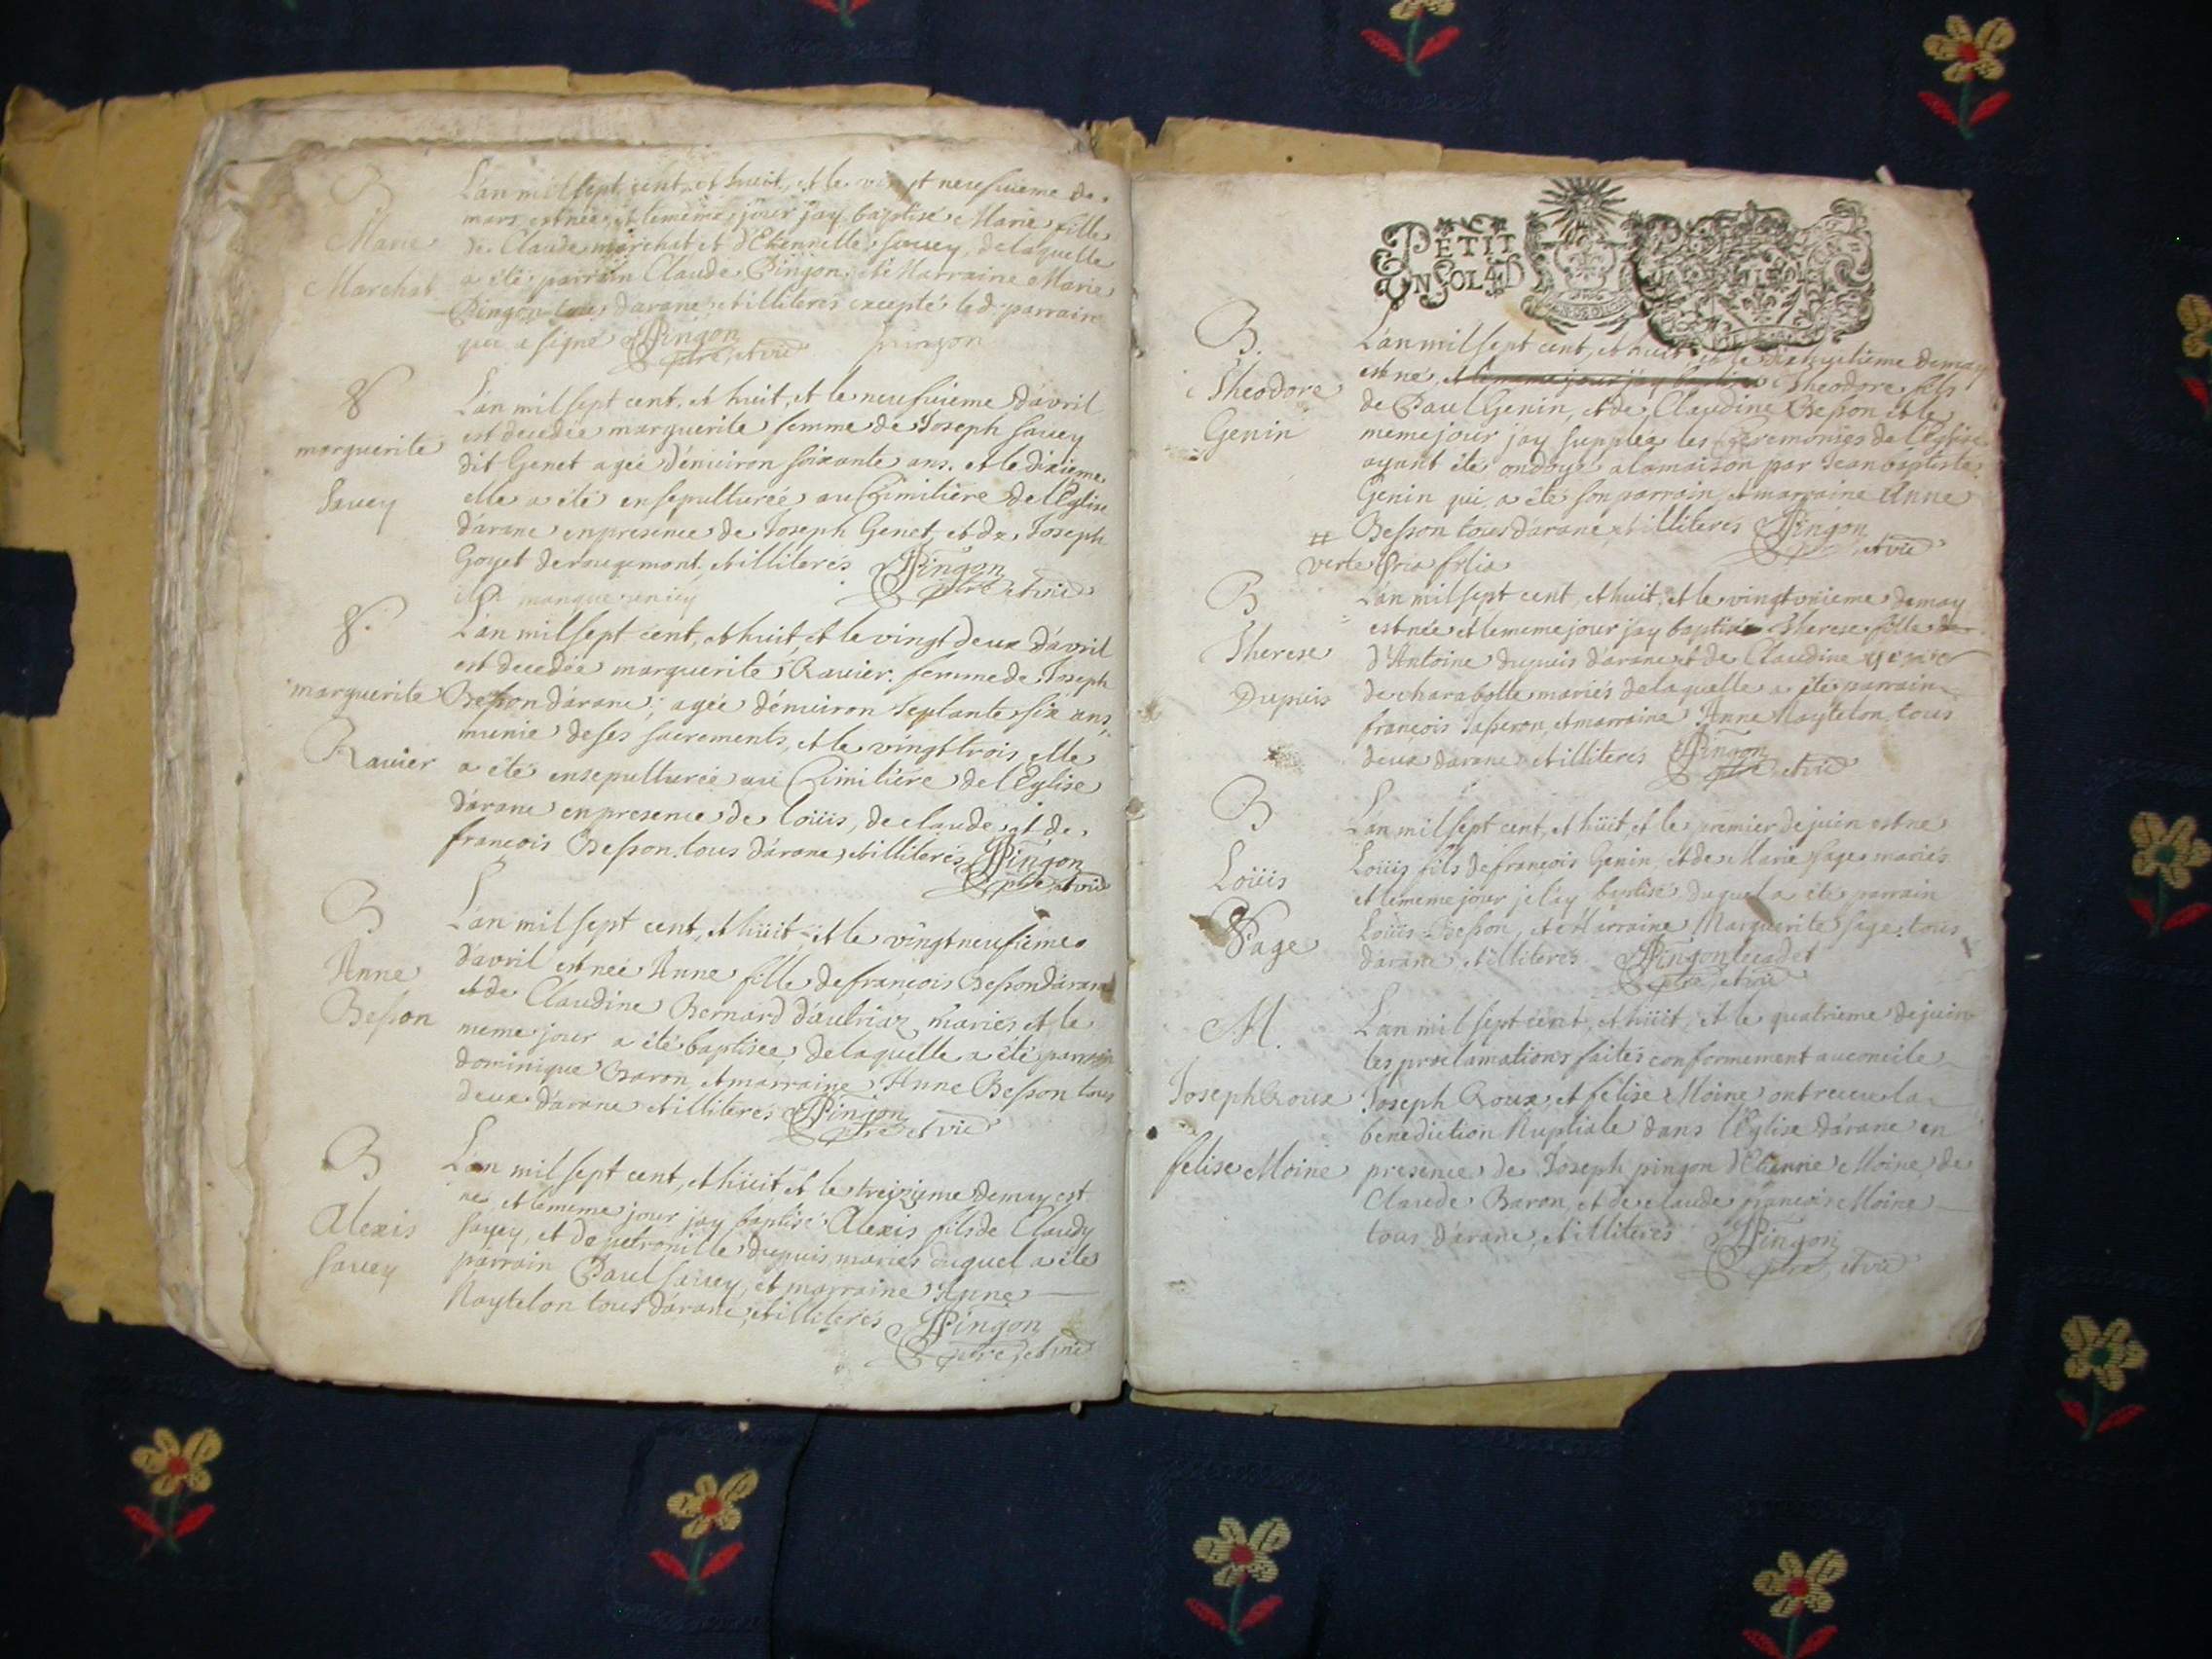 B
Marie
Marchat
L'an mil sept cent, et huit, et le vingt neufvieme de
mars est née, et le meme jour jay baptisé Marie fille
de Claude marchat et d'Etiennette savey, delaquelle
a été parrain Claude Pingon, et Marraine Marie
Pingon tous d'arane, et illiterés excepté led. parrain
qui a signé JPingon pingon
ptre, et vic
S
marguerite
Savey
L'an mil sept cent, et huit, et le neufvieme d'avril
est decedée marguerite femme de Joseph savey
dit Genet agée d'énuiron soixante ans, et le dixieme
elle a été ensepulturée au Cimitière de l'Eglise
d'arane en presence de Joseph Genet, et de Joseph
Goyet de rougemont, et illiterés JPingon
ptre et vic
il manque
S.
marguerite
Rauier
L'an mil sept cent, et huit, et le vingt deux d'avril
est decedée marguerite Rauier femme de Joseph
Besson d'arane, agée d'énuiron septante six ans,
munie de ses sacrements, et le vingt trois elle
a été ensepulturée au Cimitière de l'Eglise
d'arane en presence de loüis, de claude, et de
françois Besson tous d'arane, et illiterés JPingon
ptre, et vic
B
Anne
Besson
L'an mil sept cent, et hüit, et le vingt neufvieme
d'avril est née Anne fille de françois Besson d'arane
et de Claudine Bernard d'aulriaz mariés et le
meme jour a été baptisée, delaquelle a été parrain
dominique Baron, et marraine Anne Besson tous
deux d'arane, et illiterés JPingon
ptre et vic
B
Alexis
Savey
L'an mil sept cent, et hüit et le treizieme de may est
né et le meme jour jay baptisé Alexis fils de Claudy
savey, et de petronille Dupuis mariés duquel a été
parrain Paul savey, et marraine Anne
Naytelon tous d'arane, et illiterés JPingon
ptre, et vic
PETIT
UN SOL 4 D
B.
Theodore
Genin
L'an mil sept cent, et huit et le dixhuictieme de may
est né, et le meme jour jay baptisé Theodore fils
de Paul Genin, et de Claudine Besson et le
meme jour jay supplée les Ceremonies de l'Eglise
ayant été ondoyé a la maison par Jean baptiste
Genin qui a été son parrain, et marraine Anne
Besson tous d'arane, et illiterés JPingon
et vic
verte folia
B
Therese
Dupuis
L'an mil sept cent, et huit, et le vingt vnieme de may
est née et le meme jour jay baptisée Therese fille de
d'Antoine dupuis d'arane et de Claudine
de charabotte mariés delaquelle a été parrain
françois Tasseron, et marraine Anne Naytelon, tous
deux d'arane, et illiterés JPingon
ptre, et vic
B
Loüis
Sage
L'an mil sept cent, et hüit, et le premier de juin est né
Loüis fils de françois Genin, et de Marie sage mariés
et le meme jour je l'ay baptisé duquel a été parrain
Loüis Besson, et Marraine Marguerite sage tous
d'arane, et illiterés JPingon le cadet
ptre, et vic
M.
Joseph Roux
felise Moine
L'an mil sept cent, et hüit, et le quatrieme de juin
les proclamations faites conformement au concile
Joseph Roux, et felise Moine ont receu la
benediction Nuptiale dans l'Eglise d'arane en
presence de Joseph pingon d'Etienne Moine, de
Claude Baron, et de claude françois Moine
tous d'arane, et illiterés JPingon
ptre, et vic